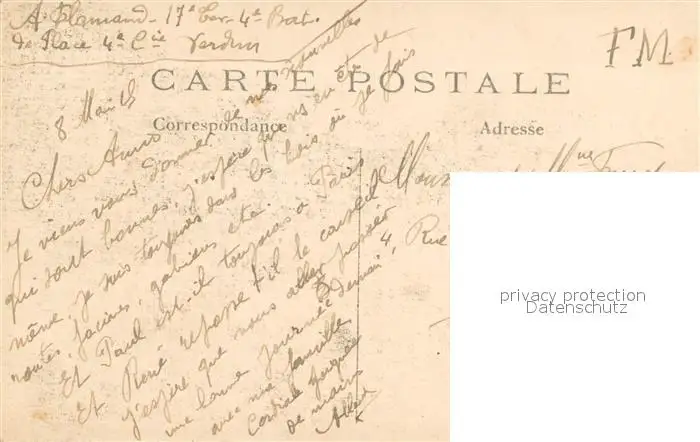 A. Flamand - 17e Ter. 4e Bat.
de Place 4e Cie Verdun
FM
CARTE POSTALE
Correspondance
Adresse
8 Mai 15
Chers Amis
Je viens vous donner de mes nouvelles
qui sont bonnes, j'espère qu'il en est de
même, je suis toujours dans les bois où je fais
routes, fascines, gabions etc.
Et Paul est-il toujours à Paris
Et René repasse t-il le conseil
j'espère que nous allons passer
une bonne journée demain,
avec ma famille
Cordiale poignée
de mains
4, Rue
privacy protection
Datenschutz